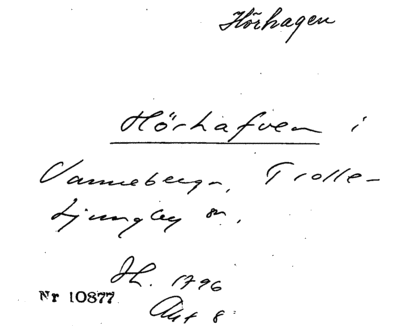 Hörhagen
Hörhafven i
Vanneberga, Trolle-
Ljungby sn.
Sk. 1796
Nr 10877
Akt 8